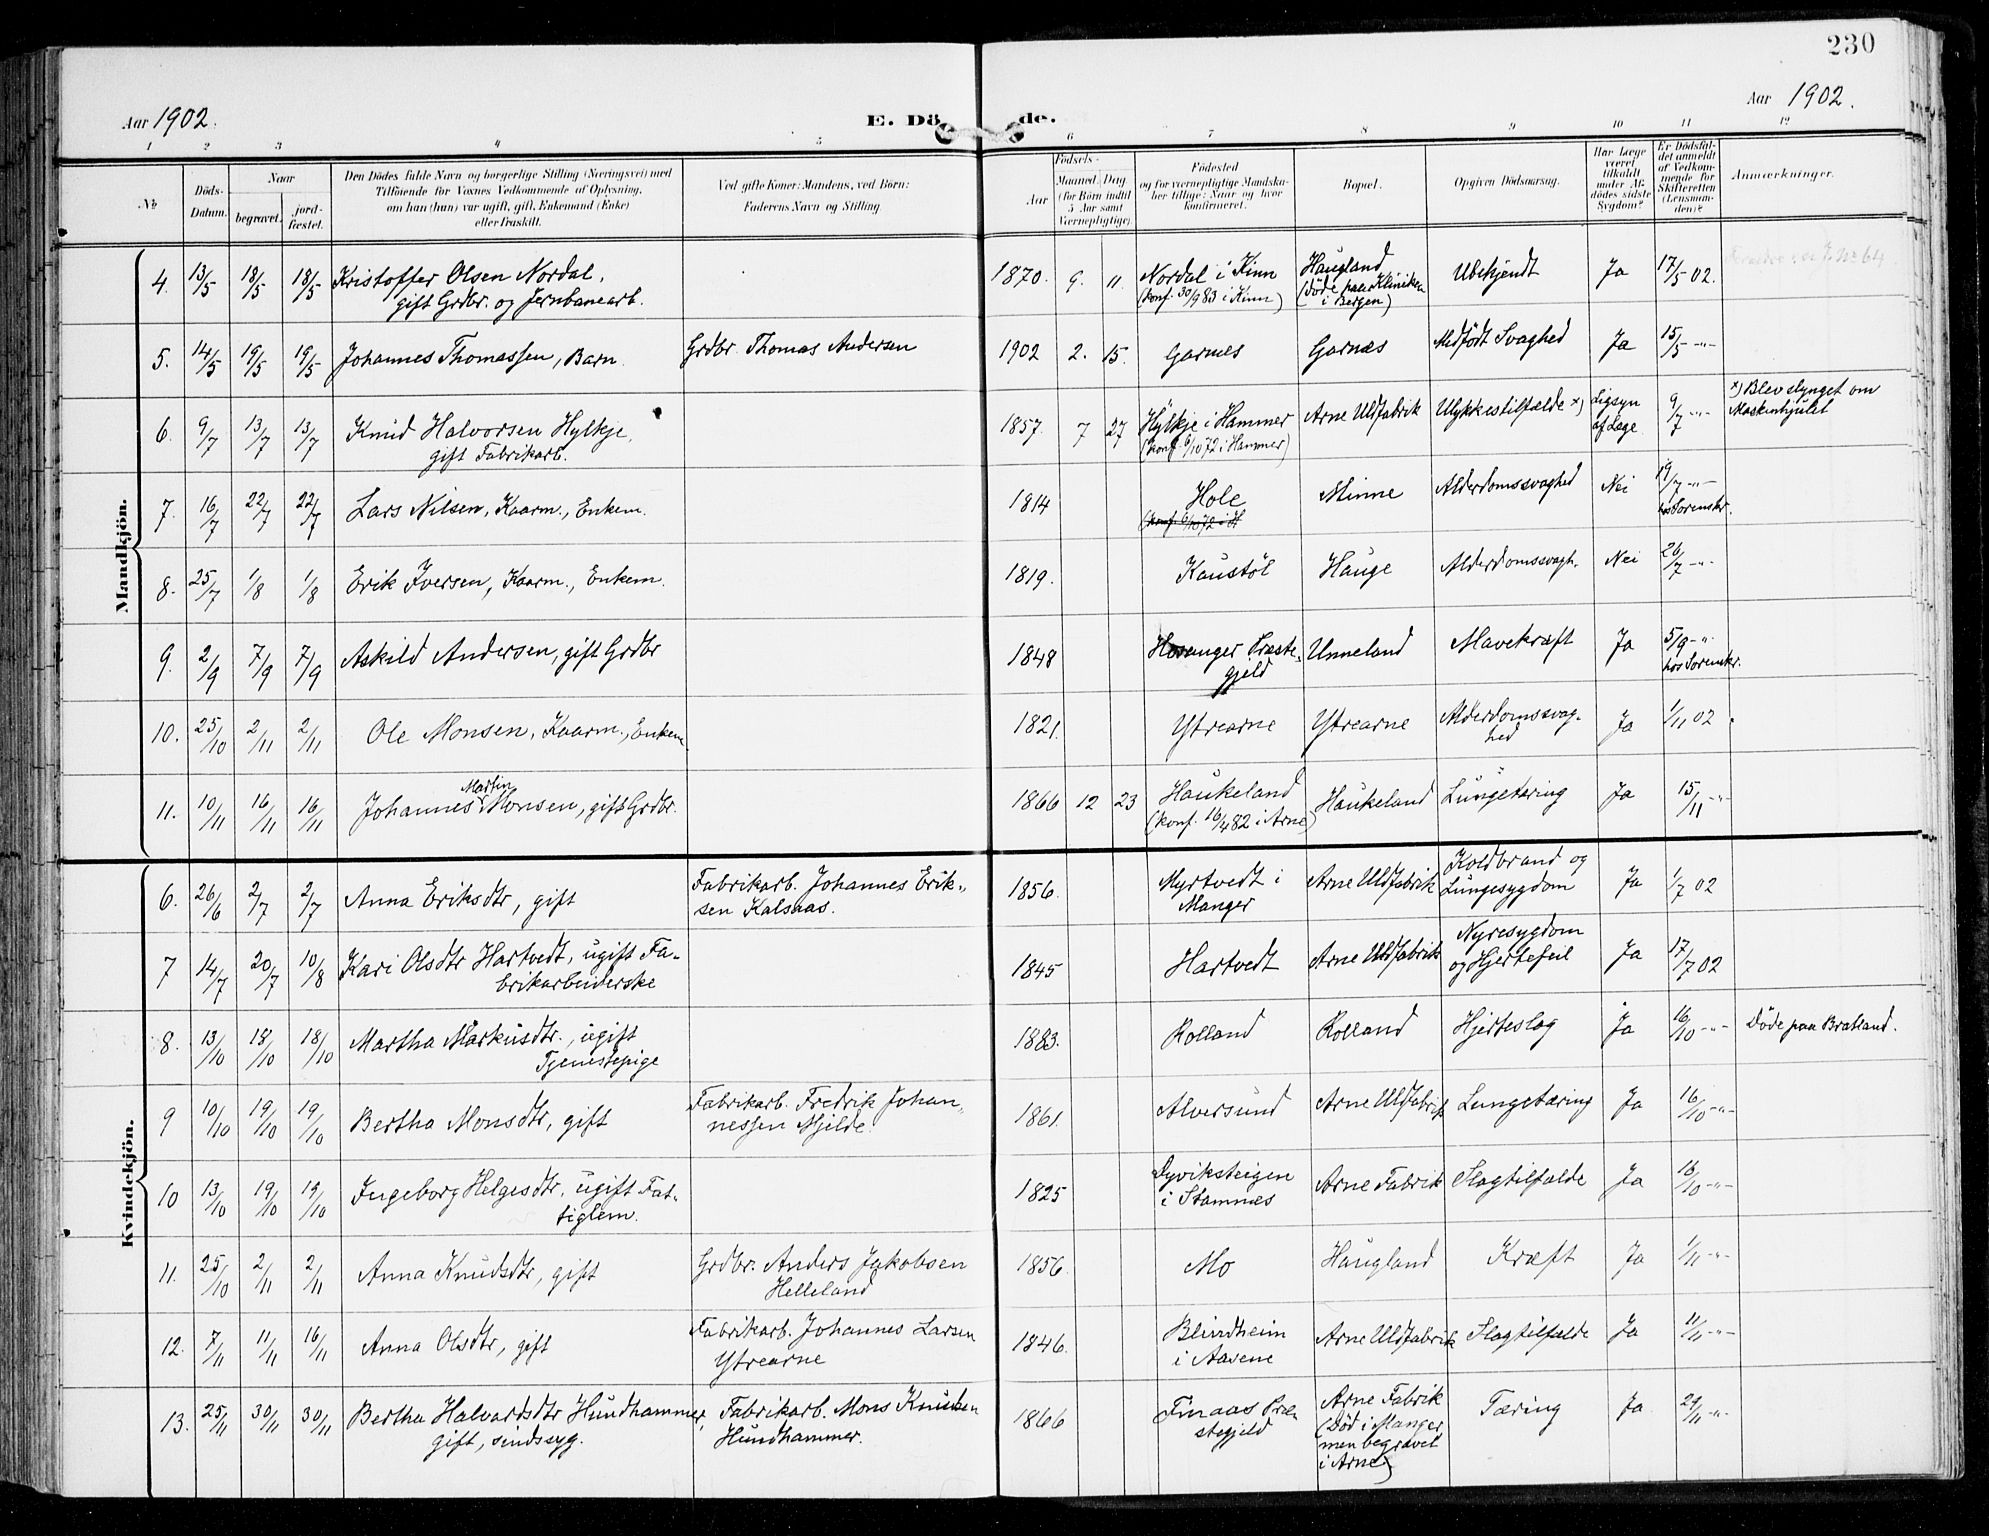 230
Aar 1902.
E. Dö de.
Aar 1902.
1 2 3 4 5 6 7 8 9 10 11 12
№
Döds-Datum.
Naar
begravet. jordfæstet.
Den Dödes fulde Navn og borgerlige Stilling (Næringsvei) med
Tilföiende for Voxnes Vedkommende af Oplysning,
om han (hun) var ugift, gift, Enkemand (Enke)
eller fraskilt.
Ved gifte Koner: Mandens, ved Börn:
Faderens Navn og Stilling
Födsels-
Aar
Maaned. Dag
(for Börn indtil
5 Aar samt
Værnepligtige).
Födested
og for værnepligtige Mandska-
ber tillige: Naar og hvor
konfirmeret.
Bopæl.
Opgiven Dödsaarsag.
Har Læge
været
tilkaldt
under Af-
dödes sidste
Sygdom?
Er Dödsfal-
det anmeldt
af Vedkom-
mende for
Skifteretten
(Lensman-
den)?
Anmærkninger.
Mandkjön.
4. 13/5 18/5 18/5 Kristoffer Olsen Nordal,
gift Grdbr. og Jernbanearb.
1870. 9. 11. Nordal i Kinn
(konf. 30/9 83 i Kinn)
Haugland
(döde paa Kliniken
i Bergen)
Ubekjendt Ja 17/5 02.
5. 14/5 19/5 19/5 Johannes Thomassen, Barn. Grdbr. Thomas Andersen 1902 2. 15. Garnes Garnæs Medfödt Svaghed Ja 15/5 -"-
6. 9/7 13/7 13/7 Knud Halvorsen Hylkje,
gift Fabrikarb.
1857. 7 27 Hylkje i Hammer
(konf. 6/10 72 i Hammer)
Arne Uldfabrik Ulykkestilfælde x) Ligsyn
af Læge
9/7 -"-
x) Blev slynget om
Maskinhjulet
7. 16/7 22/7 22/7 Lars Nilsen, Kaarm., Enkem. 1814 Hole
(konf. 6/10 72 i H
Minne Alderdomssvaghed Nei 19/7 -"-
hos Sorenskr.
8. 25/7 1/8 1/8 Erik Iversen, Kaarm., Enkem. 1819. Kaustöl Hauge Alderdomssvagh. Nei 26/7 -"-
9. 2/9 7/9 7/9 Askild Andersen, gift Grdbr 1848 Hosanger Præste-
gjeld
Unneland Mavekræft Ja 5/9 -"-
hos Sorenskr.
10. 25/10 2/11 2/11 Ole Monsen, Kaarm., Enkem 1821. Ytrearne Ytrearne Alderdomssvag-
hed
Ja 1/11 02
11. 10/11 16/11 16/11 Johannes Martin Monsen, gift Grdbr. 1866 12 23 Haukeland
(konf. 16/4 82 i Arne)
Haukeland Lungetæring Ja 15/11 -"-
Kvindekjön.
6. 26/6 2/7 2/7 Anna Eriksdtr, gift Fabrikarb. Johannes Erik-
sen Kalsaas.
1856. Myrtvedt i
Manger
Arne Uldfabrik Koldbrand og
Lungesygdom
Ja 1/7 02
7 14/7 20/7 10/8 Kari Olsdtr Hartvedt, ugift Fa-
brikarbeiderske
1845 Hartvedt Arne Uldfabrik Nyresygdom
og Hjertefeil
Ja 17/7 02
8. 13/10 18/10 18/10 Martha Markusdtr., ugift
Tjenestepige
1883. Rolland Rolland Hjerteslag Ja 16/10 -"- Döde paa Bratland.
9 10/10 19/10 19/10 Bertha Monsdtr, gift Fabrikarb. Fredrik Johan-
nessen Mjelde.
1861. Alversund Arne Uldfabrik Lungetæring Ja 16/10 -"-
10 13/10 19/10 19/10 Ingeborg Helgesdtr, ugift Fat-
tiglem.
1825 Dyviksteigen
i Stamnæs
Arne Fabrik Slagtilfælde Ja 16/10 -"-
11. 25/10 2/11 2/11 Anna Knudsdtr, gift Grdbr. Anders Jakobsen
Helleland
1856. Mo Haugland Kræft Ja 1/11 -"-
12. 7/11 11/11 16/11 Anna Olsdtr, gift Fabrikarb. Johannes Larsen
Ytrearne
1846. Blindheim
i Aasene
Arne Uldfabrik Slagtilfælde Ja 11/11 -"-
13. 25/11 30/11 30/11 Bertha Halvardsdtr Hundhammer,
gift, sindssyg.
Fabrikarb. Mons Knudsen
Hundhammer.
1866 Finaas Præ-
stegjeld
Arne Fabrik
(Död i Manger
men begravet
i Arne)
Tæring Ja 29/11 -"-